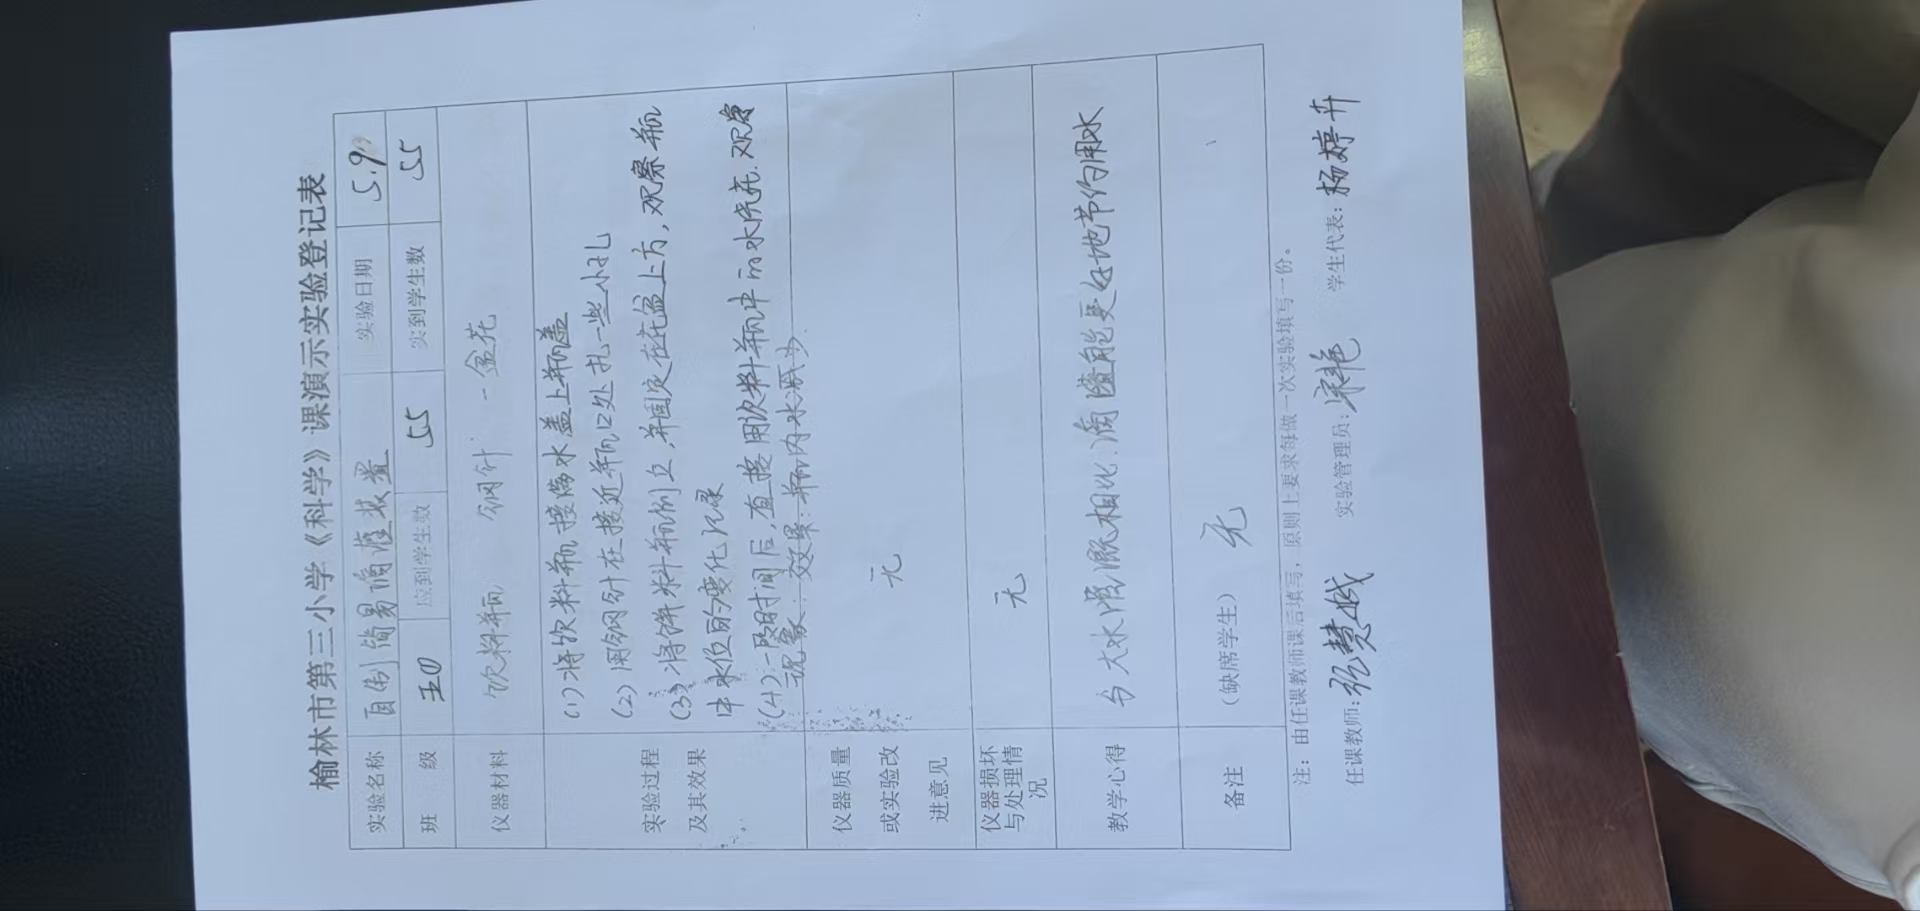 榆林市第三小学《科学》课演示实验登记表
实验名称 自制简易滴灌装置 实验日期 5.9
班 级 五(1) 应到学生数 55 实到学生数 55
仪器材料 饮料瓶 钢针 一盆花
实验过程
及其效果
(1)将饮料瓶接满水盖上瓶盖
(2)用钢针在接近瓶口处扎一些小孔
(3)将饮料瓶倒立,并固定在花盆上方,观察瓶
中水位的变化记录
(4)一段时间后,直接用饮料瓶中的水浇花.观察
现象. 效果:瓶内水减少.
仪器质量
或实验改
进意见
无
仪器损坏
与处理情
况
无
教学心得 与大水漫灌相比,滴灌能更好地节约用水
备注 (缺席学生) 无
注:由任课教师课后填写,原则上要求每做一次实验填写一份。
任课教师:张慧越 实验管理员: 学生代表:杨婷卉